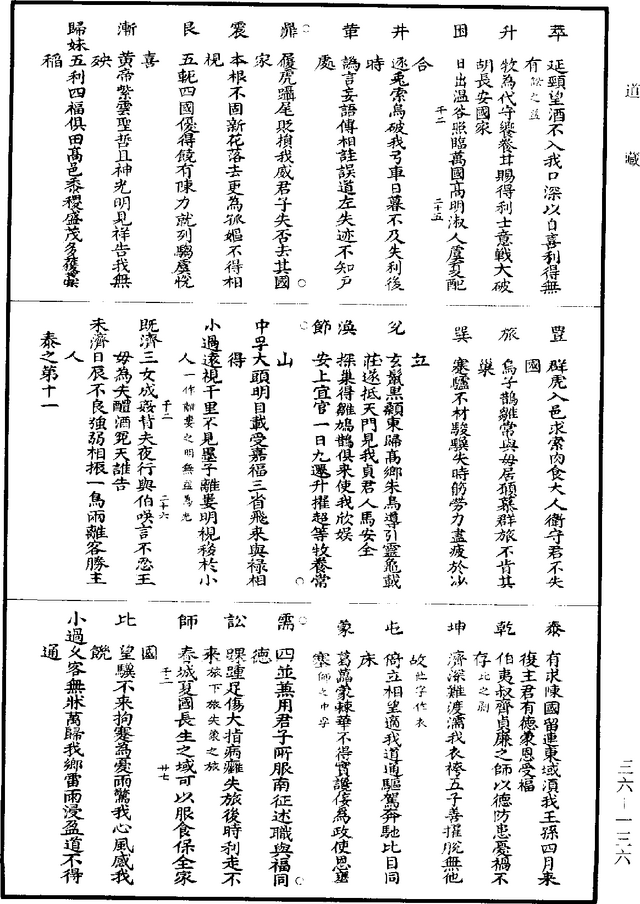 道藏
萃 延頸望酒不入我口深以自喜利得無
有散之益
升 牧為代守饗養甘賜得利士意戰大破
胡長安國家
困 日出溫谷照臨萬國高明淑人虞夏配
合
千二 二十五
井 逐兔索烏破我弓車日暮不及失利後
時
革 譌言妄語傳相詿誤道左失迹不知戶
處
鼎 履虎躡尾貶損我威君子失否去其國
家
震 本根不固新花落去更為孤嫗不得相
視
艮 五軛四國優得饒有陳力就列騶虞悅
喜
漸 黃帝紫雲聖哲且神光明見祥告我無
殃
歸妹 五利四福俱田高邑黍稷盛茂多獲藁
稻
豐 群虎入邑求索肉食大人衛守君不失
國
旅 烏子鵲雛常與母居願慕群旅不肯其
巢
巽 蹇驢不材駿驥失時筋勞力盡疲於沙
丘
兌 玄鬣黑顙東歸高鄉朱鳥導引靈龜載
莊遂抵天門見我貞君人馬安全
渙 探巢得雛鳩鵲俱來使我欣娛
節 安上宜官一日九遷升擢超等牧養常
山
中孚 大頭明目載受嘉福三省飛來與祿相
得
小過 遠視千里不見墨子離婁明視務於小
人 一作離婁之明無益為光
千二 二十六
既濟 三女成姦背夫夜行與伯笑言不忍王
毋為失醴酒冤天誰告
未濟 日辰不良強弱相振一鳥雨離客勝主
人
泰之第十一
泰 有求陳國留連東域須我王孫四月來
復主君有德蒙恩受福
乾 伯夷叔齊貞廉之師以德防患憂禍不
存 比之剝
坤 濟深難渡濡我衣袴五子善擢脫無他
故
屯 倚立相望適我道通驅駕奔馳比目同
床
蒙 葛藟蒙棘華不得實讒佞為政使恩壅
塞 師之中孚
需 四並兼用君子所服南征述職與福同
德
訟 踝踵足傷大指病癰失旅後時利走不
來 旅下旅失羣之旅
千二 廿七
師 春城夏國長生之域可以服食保全家
國
比 望驥不來拘蹇為憂雨驚我心風感我
饒
小過 义客無牀萬歸我鄉雷雨浸盈道不得
通
三六-一三六